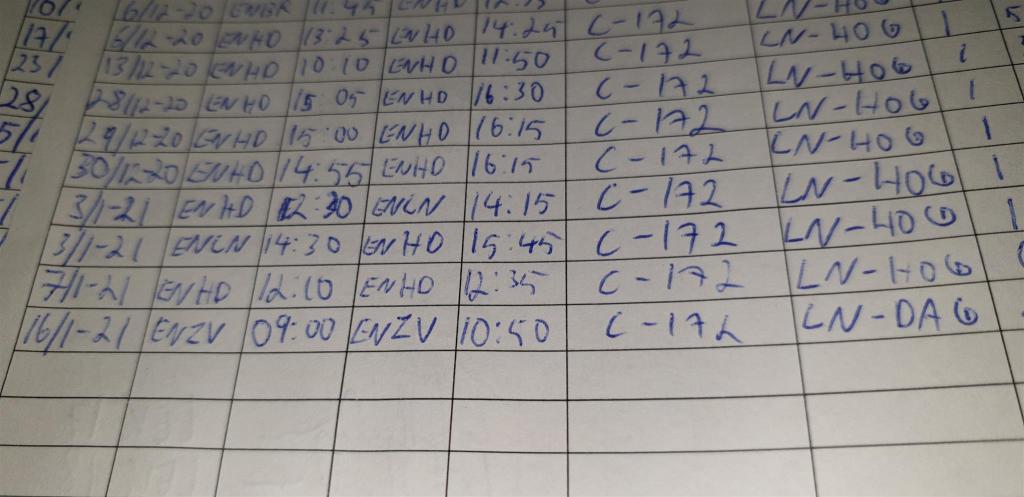 6/12-20 ENBR 11:45 ENHD LN-HOG
17/ 6/12-20 ENHD 13:25 ENHD 14:25 C-172 LN-HOG 1 5
23/ 13/12-20 ENHD 10:10 ENHD 11:50 C-172 LN-HOG 1
28/ 28/12-20 ENHD 15:05 ENHD 16:30 C-172 LN-HOG 1
5/ 29/12-20 ENHD 15:00 ENHD 16:15 C-172 LN-HOG 1
30/12-20 ENHD 14:55 ENHD 16:15 C-172 LN-HOG 1
3/1-21 ENHD 12:30 ENCN 14:15 C-172 LN-HOG 1
3/1-21 ENCN 14:30 ENHD 15:45 C-172 LN-HOG
7/1-21 ENHD 12:10 ENHD 12:35 C-172 LN-HOG
16/1-21 ENZV 09:00 ENZV 10:50 C-172 LN-DAG